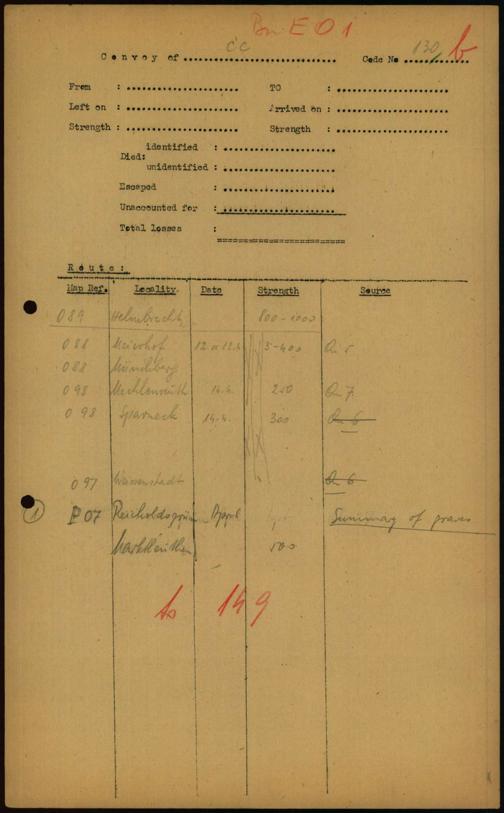 Bn E 0 1
Convoy of .......... CC .......... Code No ..130/b..
From : .................... TO : ....................
Left on : .................... Arrived on : ....................
Strength : .................... Strength : ....................
Died: identified : ....................
unidentified : ....................
Escaped : ....................
Unaccounted for : ....................
Total losses :
Route:
Map Ref. Locality Date Strength Source
089 Helmbrechts 800-1000
088 Meierhof 12 u 13.4 3-400 Qu 5
088 Münchberg
098 Mechlenreuth 14.4. 250 Qu 7
098 Sparneck 14.4. 300 Qu 6
097 Weissenstadt Qu 6
1 P07 Reicholdsgrün April Summary of graves
Marktleuthen 500
to 149